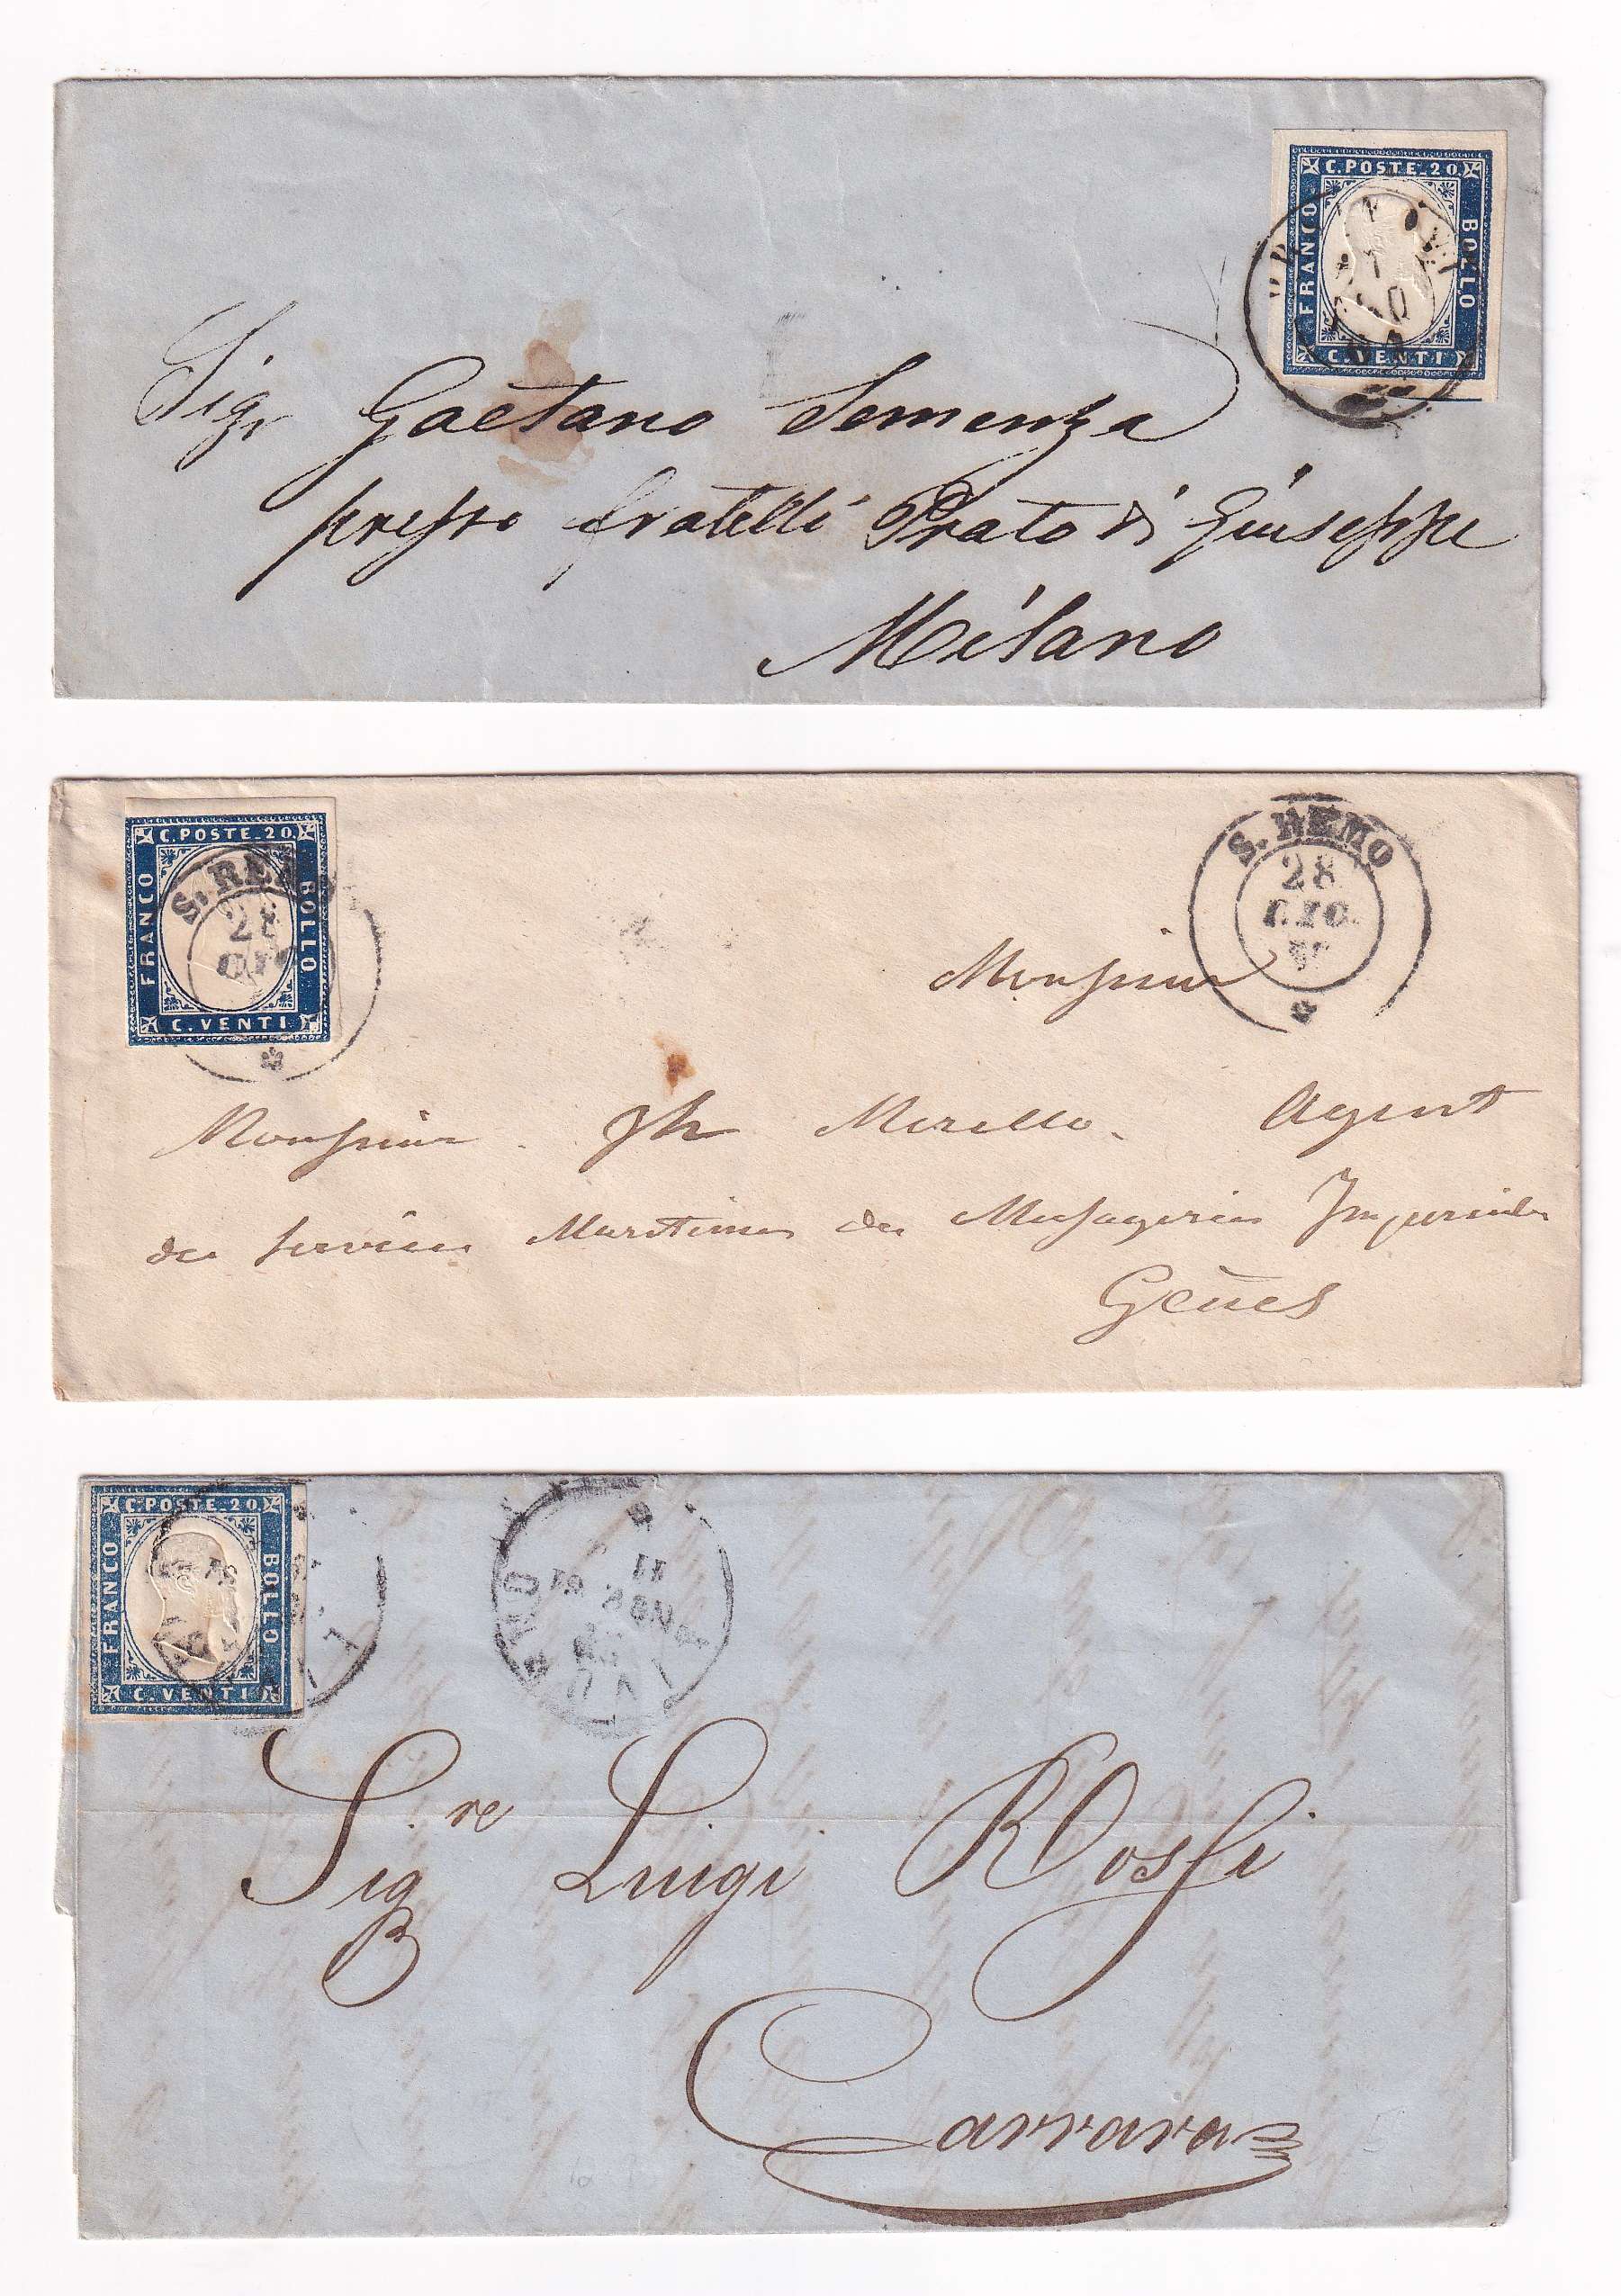 C. POSTE. 20.
FRANCO
BOLLO
C. VENTI
60
Sigr Gaetano Semenza
presso fratelli Prato di Giuseppe
Milano
C. POSTE. 20.
FRANCO
BOLLO
C. VENTI.
S. RE
28
GIU
S. REMO
28
GIU.
Monsieur
Monsieur Jh Merello. Agent
des Services Maritimes des Messageries Imperiales
Gênes
C. POSTE. 20
FRANCO
BOLLO
C. VENTI
61
LIVORNO
11 NOV 61
Sigre Luigi Rossi
Carrara